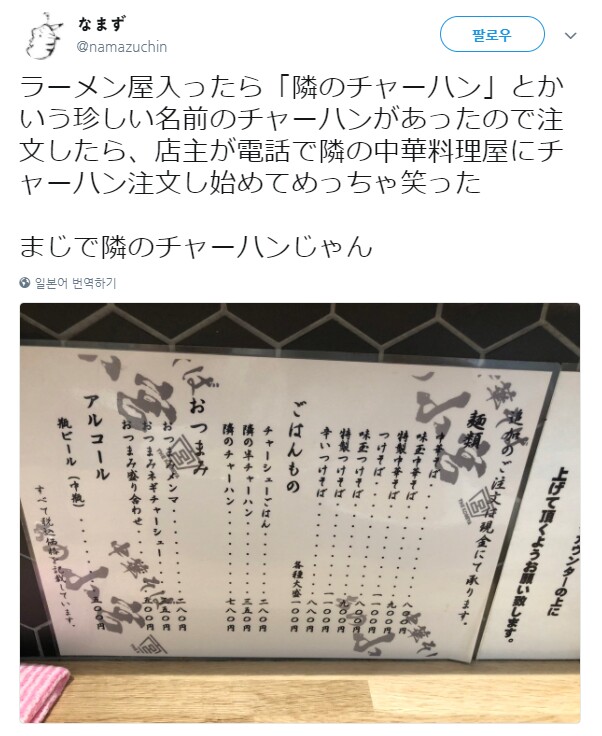 なまず
@namazuchin
팔로우
ラーメン屋入ったら「隣のチャーハン」とか
いう珍しい名前のチャーハンがあったので注
文したら、店主が電話で隣の中華料理屋にチ
ャーハン注文し始めてめっちゃ笑った
まじで隣のチャーハンじゃん
일본어 번역하기
上げて頂くようお願い致します。
追加のご注文は現金にて承ります。
麺類
中華そば
味玉中華そば
特製中華そば
つけそば
味玉つけそば
特製つけそば
辛いつけそば
ごはんもの
各種大盛一〇〇円
チャーシューごはん 二八〇円
隣の半チャーハン 三五〇円
隣のチャーハン 七八〇円
おつまみ
おつまみメンマ 二八〇円
おつまみネギチャーシュー
おつまみ盛り合わせ
アルコール
瓶ビール（中瓶）
すべて税込価格を記載しています。